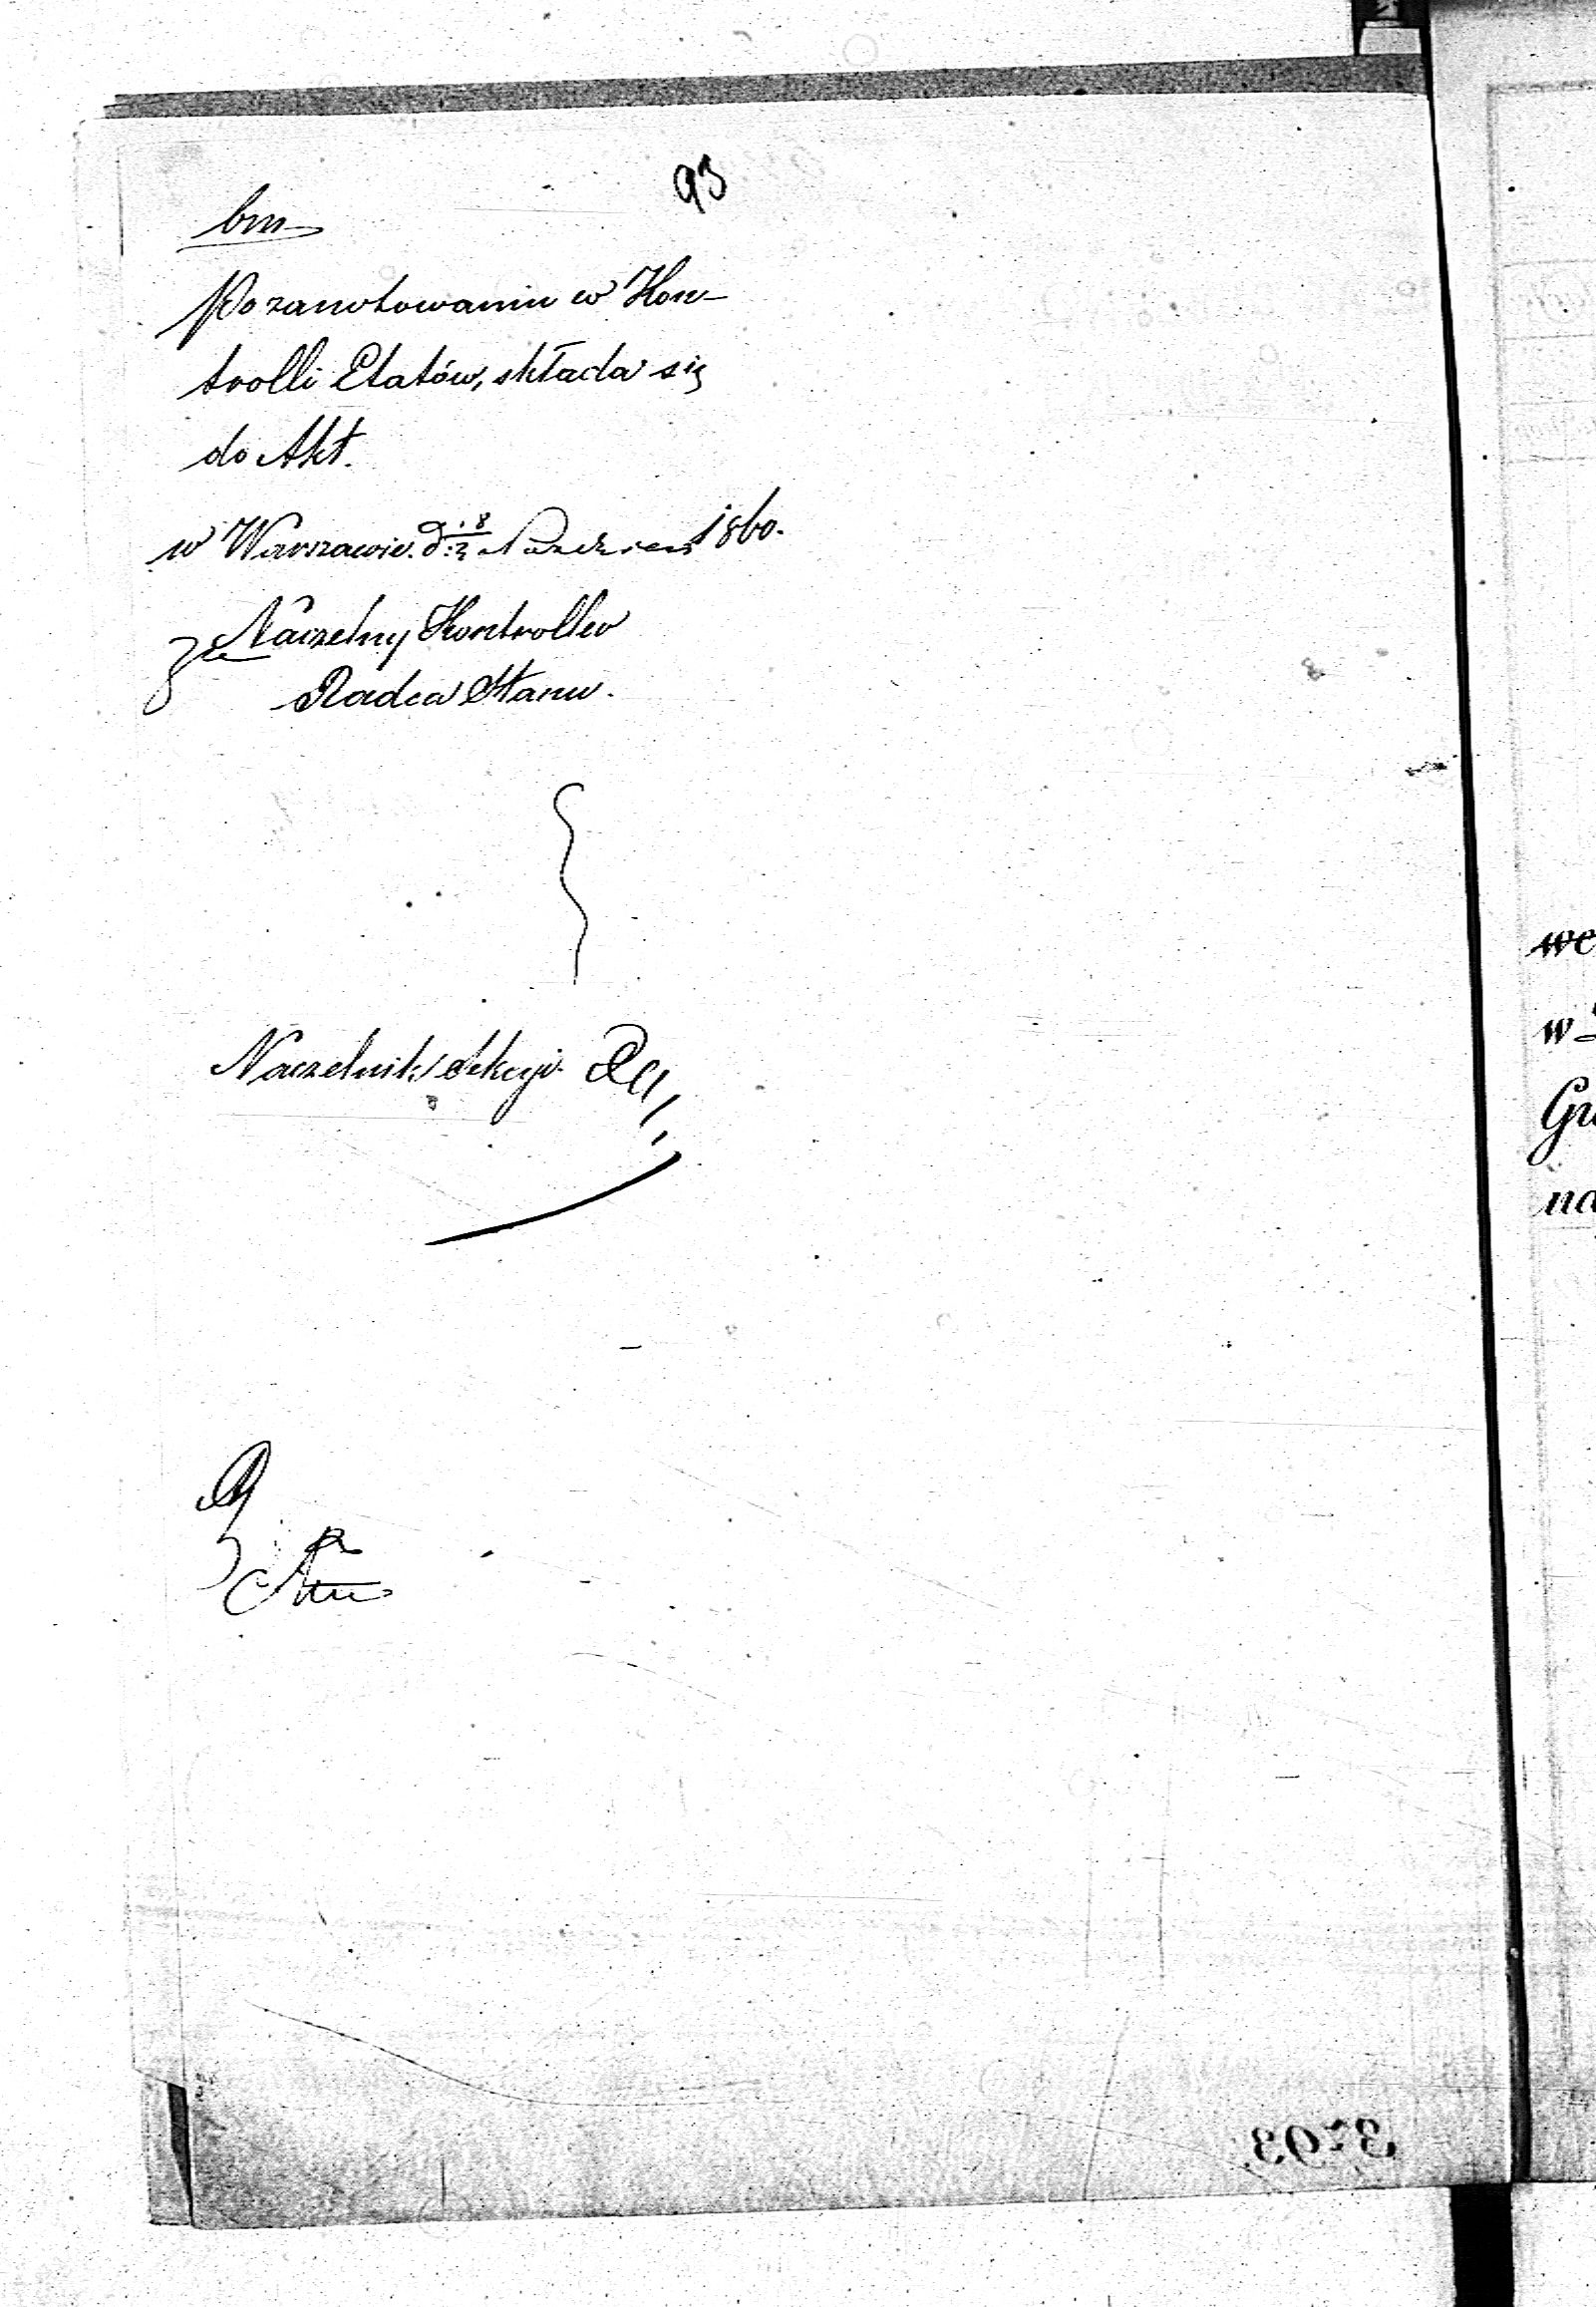 93
bm
Po zanotowaniu w Kon-
trolli Etatów, składa się
do Akt.
w Warszawie d. Paździer 1860.
za Naczelny Kontroller
Radca Stanu.
Naczelnik Sekcyi
we
w
Gu
na